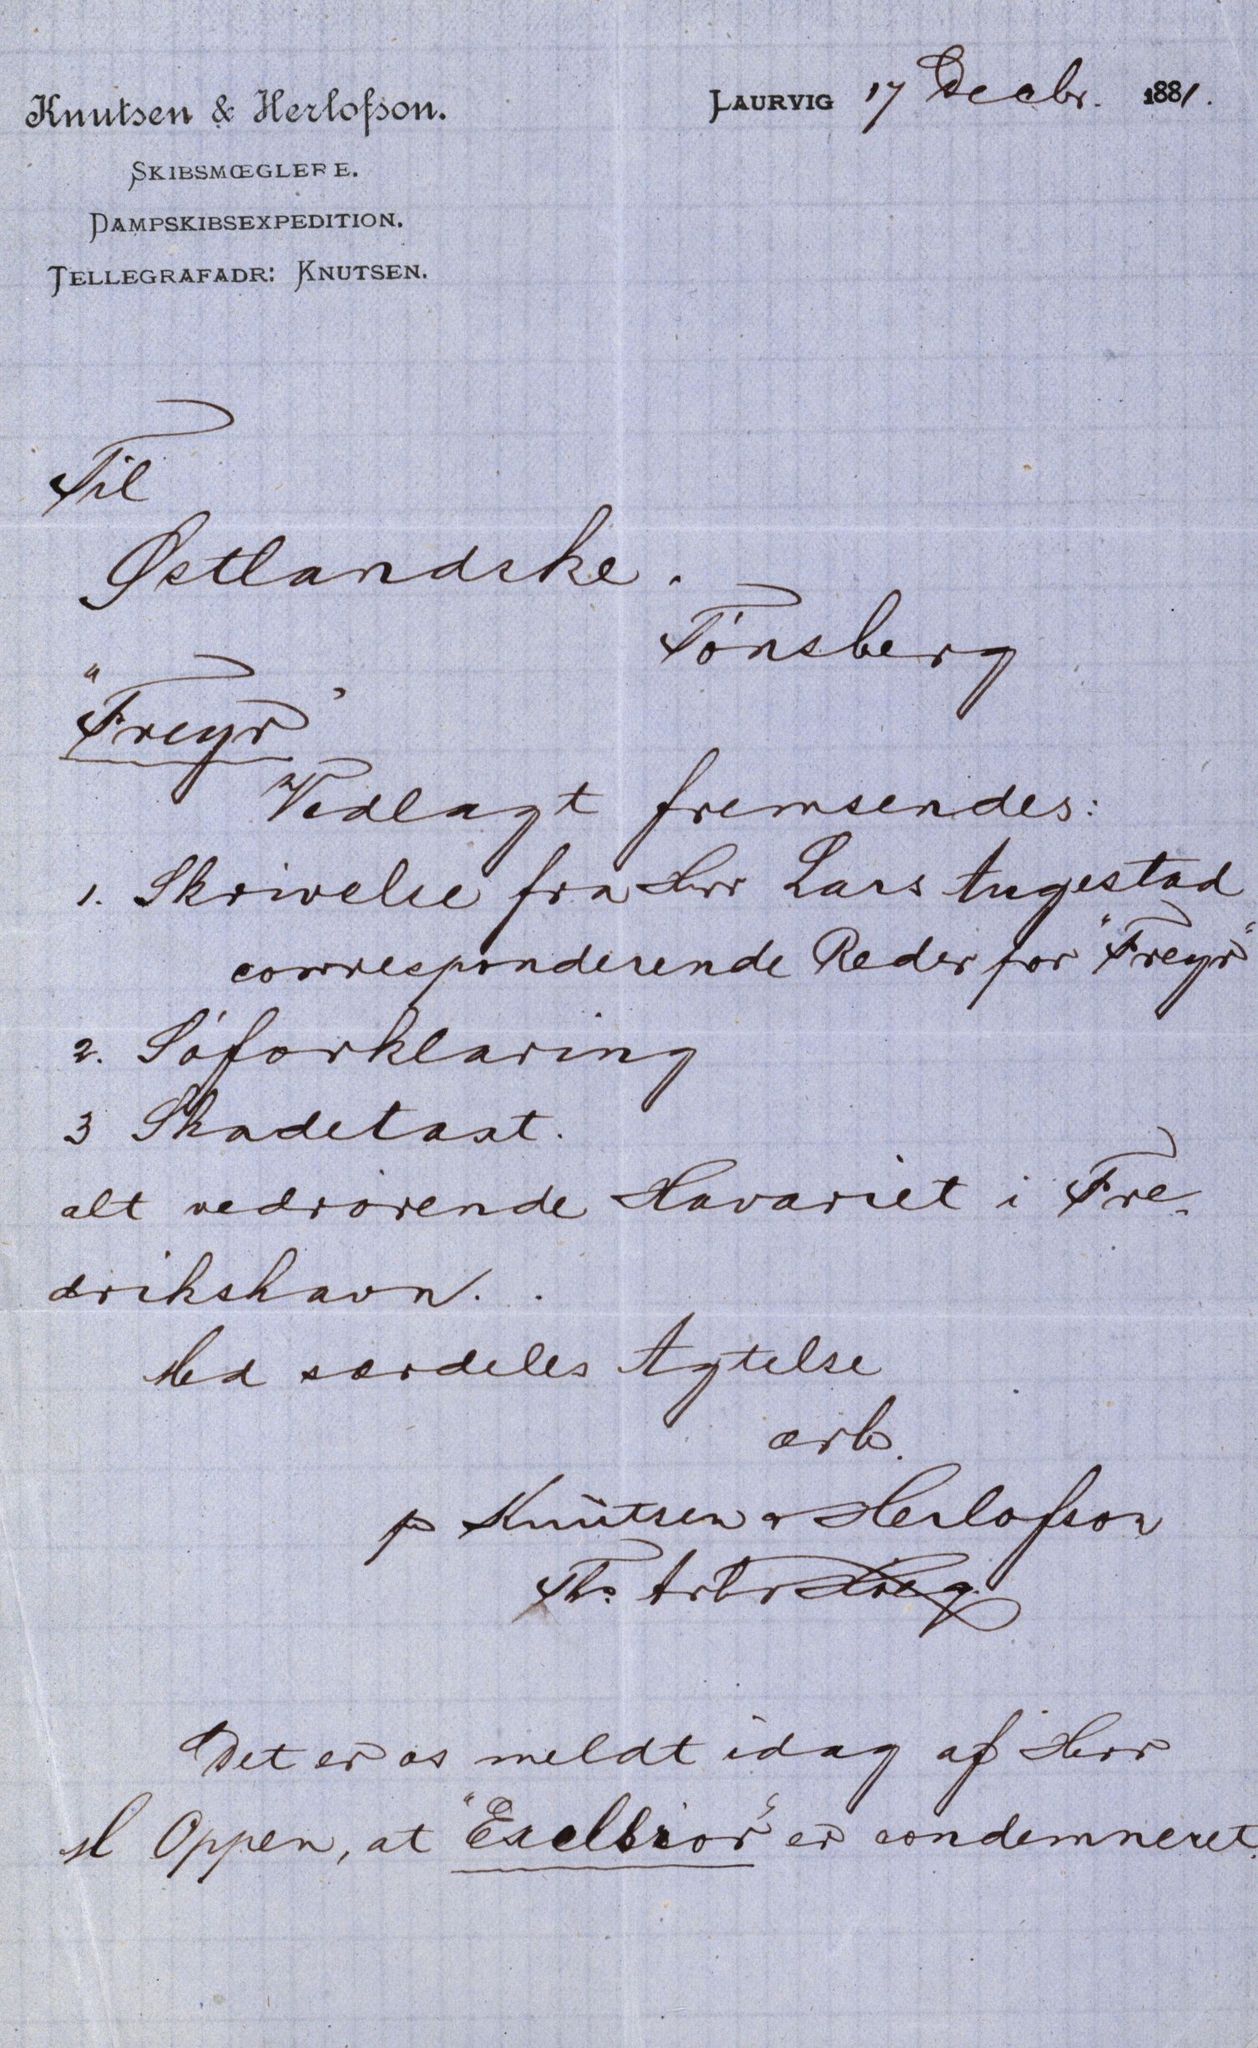 Knutsen & Herlofson.
SKIBSMŒGLERE.
DAMPSKIBSEXPEDITION.
TELLEGRAFADR: KNUTSEN.
LAURVIG 17 Decbr. 1881.
Til
Østlandske.
Tönsberg
"Freyr"
Vedlagt fremsendes:
1. Skrivelse fra Herr Lars Augestad
corresponderende Reder for "Freyr"
2. Söforklaring
3 Skadetaxt.
alt vedrörende Havariet i Fre-
drikshavn.
Med særdeles Agtelse
ærb.
p Knutsen & Herlofson
Det er os meldt idag af Herr
M Oppen, at "Exelsior" er condemneret.